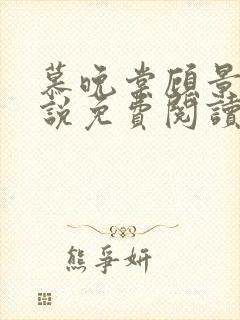 慕晚棠顧景
說免費閱讀
熊爭妍